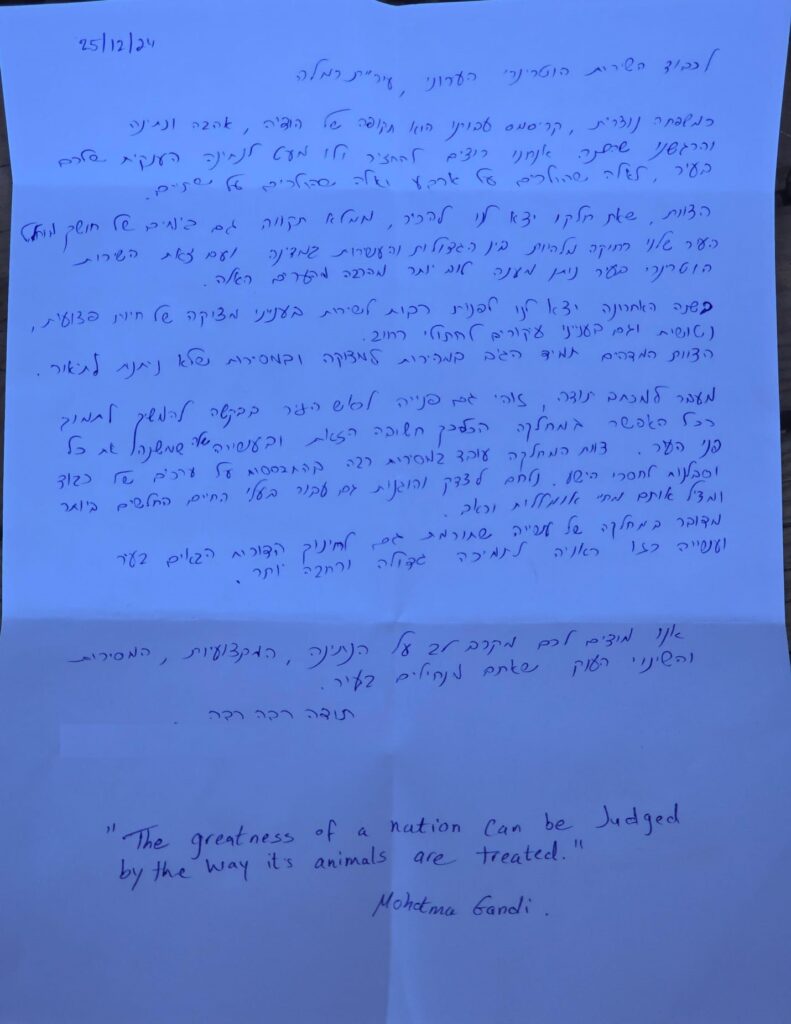 25/12/24
לכבוד השירות הוטרינרי העירוני, עיריית רמלה
כמשפחה נוצרית, קריסמס עבורנו הוא תקופה של הודיה, אהבה ונתינה
והרגשנו שהשנה אנחנו רוצים להחזיר ולו מעט לנתינה הענקית שלכם
בעיר, לאלה שהולכים על ארבע ואלה שהולכים על שתיים.
הצוות, שאת חלקו יצא לנו להכיר, ממלא תקווה גם בימים של חושך
העיר שלנו רחוקה מלהיות בין הגדולות והעשירות במדינה ועם זאת השירות
הוטרינרי בעיר נותן מענה טוב יותר מהרבה מהערים האלה.
בשנה האחרונה יצא לנו לפנות רבות לשירות בענייני מצוקה של חיות פצועות,
נטושות וגם בענייני עיקורים לחתולי רחוב.
הצוות המדהים תמיד הגיב במהירות למצוקה ובמסירות שלא ניתנת לתיאור.
מעבר למכתב תודה, זוהי גם פנייה לראש העיר בבקשה להמשיך לתמוך
ככל האפשר במחלקה הכל כך חשובה הזאת ובעשייה שלה שמשנה את כל
פני העיר. צוות המחלקה עובד במסירות רבה בהתבססות על ערכים של כבוד
וסבלנות לחסרי הישע. נלחם לצדק והוגנות גם עבור בעלי החיים החלשים ביותר
ומציל אותם מחיי אומללות וכאב.
מדובר במחלקה של עשייה שתורמת גם לחינוך הדורות הבאים בעיר
ועשייה כזו ראויה לתמיכה גדולה ורחבה יותר.
אנו מודים לכם מקרב לב על הנתינה, המקצועיות, המסירות
והשינוי העמוק שאתם מנחילים בעיר.
תודה רבה רבה.
"The greatness of a nation can be Judged
by the way it's animals are treated."
Mohatma Gandi.